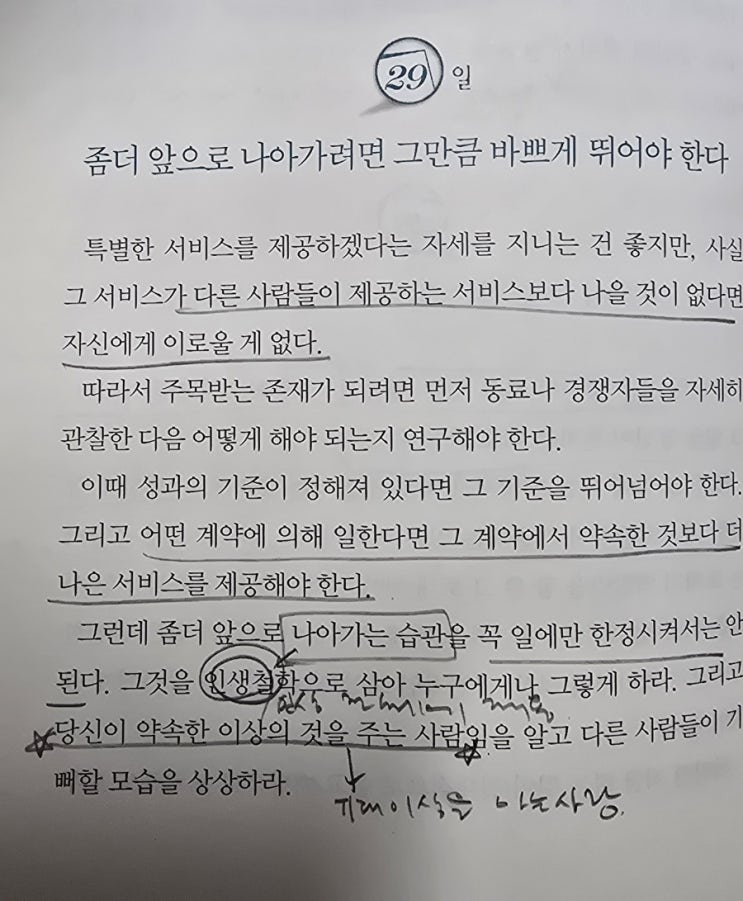 29일
좀더 앞으로 나아가려면 그만큼 바쁘게 뛰어야 한다
특별한 서비스를 제공하겠다는 자세를 지니는 건 좋지만, 사실
그 서비스가 다른 사람들이 제공하는 서비스보다 나을 것이 없다면
자신에게 이로울 게 없다.
따라서 주목받는 존재가 되려면 먼저 동료나 경쟁자들을 자세히
관찰한 다음 어떻게 해야 되는지 연구해야 한다.
이때 성과의 기준이 정해져 있다면 그 기준을 뛰어넘어야 한다.
그리고 어떤 계약에 의해 일한다면 그 계약에서 약속한 것보다 더
나은 서비스를 제공해야 한다.
그런데 좀더 앞으로 나아가는 습관을 꼭 일에만 한정시켜서는 안
된다. 그것을 인생철학으로 삼아 누구에게나 그렇게 하라. 그리고
당신이 약속한 이상의 것을 주는 사람임을 알고 다른 사람들이 기
뻐할 모습을 상상하라.
사람.